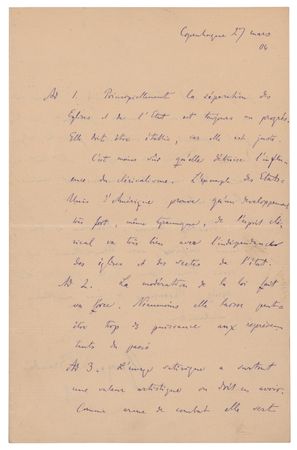 Copenhague 27 mars
04
Ad 1. Principiellement la séparation des
Eglises et de l'Etat est toujours un progrès.
Elle doit être établie, car elle est juste.
C'est moins sûr qu'elle détruise l'influ-
ence du cléricalisme. L'exemple des Etats
Unis d'Amérique prouve qu'un developpement
très fort, même tyrannique, de l'esprit clé-
rical va très bien avec l'indépendance
des églises et des sectes de l'état.
Ad 2. La modération de la loi fait
sa force. Néanmoins elle laisse peut-
être trop de puissance aux représen-
tants du passé
Ad 3. L'image satirique a surtout
une valeur artistique ou doit en avoir.
Comme arme de combat elle reste